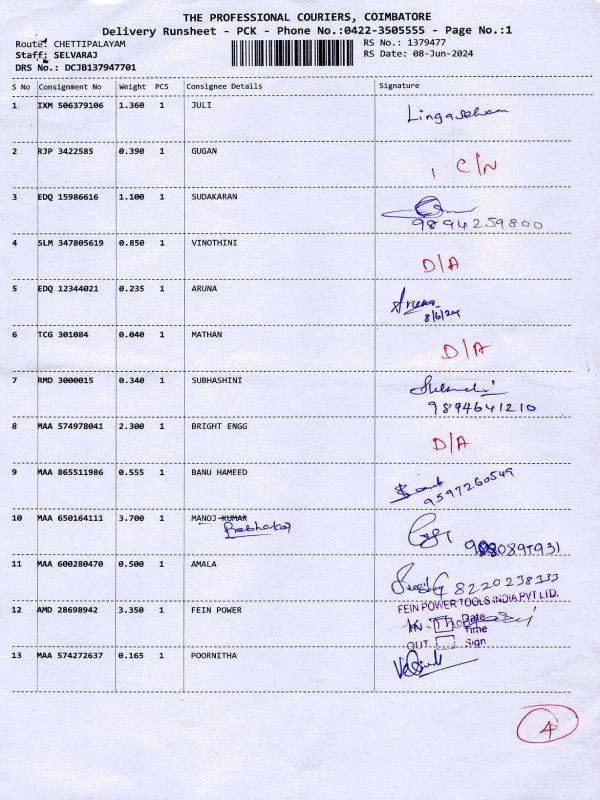 THE PROFESSIONAL COURIERS, COIMBATORE
Delivery Runsheet - PCK - Phone No.:0422-3505555 - Page No.:1
Route: CHETTIPALAYAM RS No.: 1379477
Staff: SELVARAJ RS Date: 08-Jun-2024
DRS No.: DCJB137947701
S No Consignment No Weight PCS Consignee Details Signature
1 IXM 506379106 1.360 1 JULI
2 RJP 3422585 0.390 1 GUGAN C/N
3 EDQ 15986616 1.100 1 SUDAKARAN
9894259800
4 SLM 347805619 0.850 1 VINOTHINI D/A
5 EDQ 12344021 0.235 1 ARUNA Aruna
8/6/24
6 TCG 301084 0.040 1 MATHAN D/A
7 RMD 3000015 0.340 1 SUBHASHINI
9894641210
8 MAA 574978041 2.300 1 BRIGHT ENGG D/A
9 MAA 865511986 0.555 1 BANU HAMEED
9597260549
10 MAA 650164111 3.700 1 MANOJ KUMAR
Prabhakar
11 MAA 600280470 0.500 1 AMALA 8220238333
12 AMD 28698942 3.350 1 FEIN POWER FEIN POWER TOOLS INDIA PVT LTD.
IN Date
Time
OUT Sign
13 MAA 574272637 0.165 1 POORNITHA
4